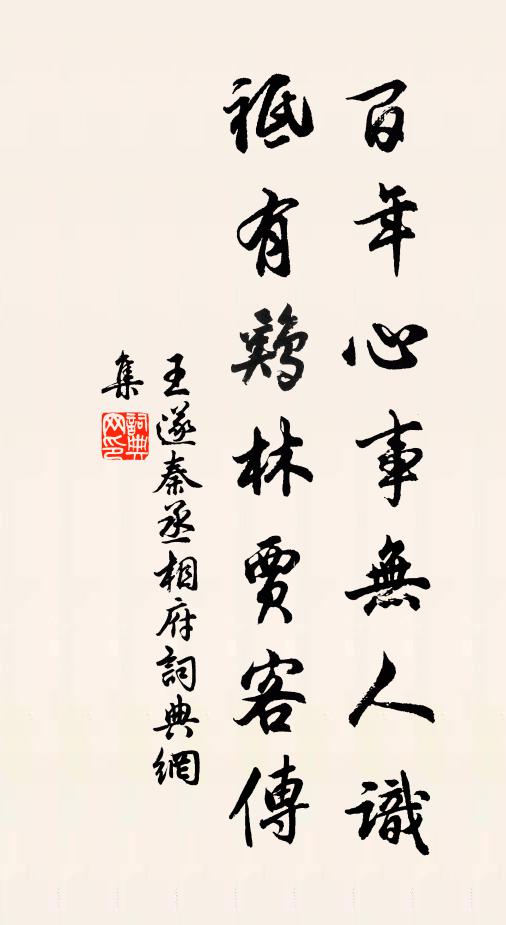 百年心事無人識
祗有鷄林賈客傳
王遂秦丞相府詞典網
集
詞典
网印